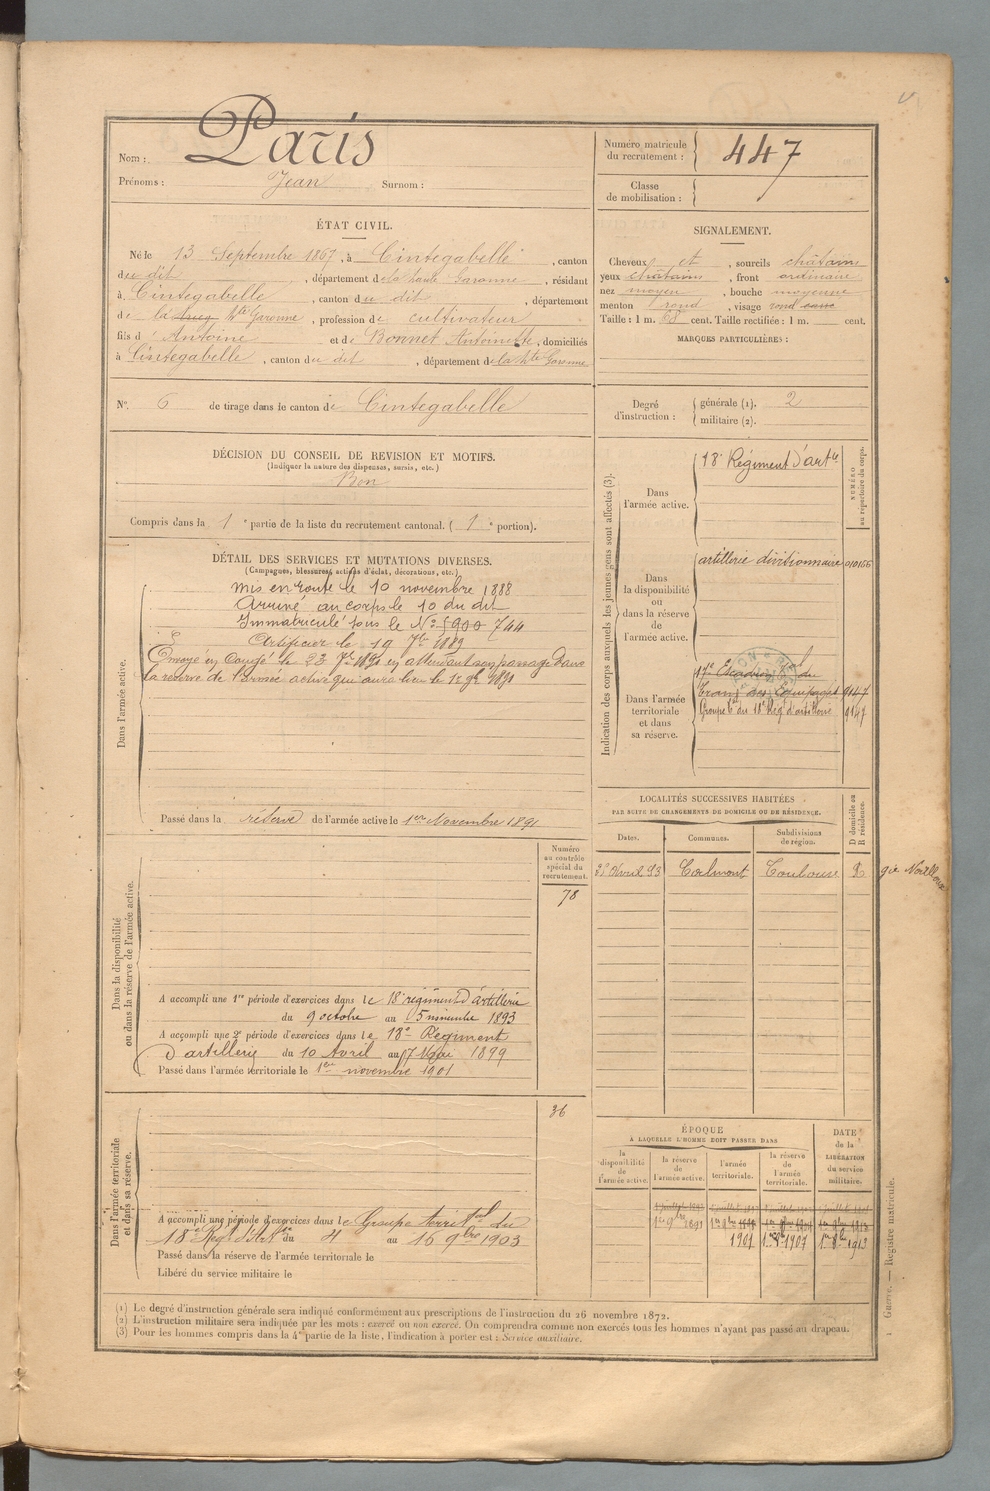 Nom : Paris
Prénoms : Jean Surnom :
Numéro matricule du recrutement : 447
Classe de mobilisation :
ÉTAT CIVIL.
Né le 13 Septembre 1867, à Cintegabelle, canton
du dit, département de la haute Garonne, résidant
à Cintegabelle, canton du dit, département
de la hte Garonne, profession de cultivateur
fils d'Antoine et de Bonnet Antoinette, domiciliés
à Cintegabelle, canton du dit, département de la hte Garonne
N° 6 de tirage dans le canton de Cintegabelle
SIGNALEMENT.
Cheveux et, sourcils châtains
yeux châtains, front ordinaire
nez moyen, bouche moyenne
menton rond, visage rond
Taille : 1 m. 68 cent. Taille rectifiée : 1 m. cent.
MARQUES PARTICULIÈRES :
Degré d'instruction : générale (1). 2
militaire (2).
DÉCISION DU CONSEIL DE REVISION ET MOTIFS.
(Indiquer la nature des dispenses, sursis, etc.)
Bon
Compris dans la 1e partie de la liste du recrutement cantonal. (1e portion).
DÉTAIL DES SERVICES ET MUTATIONS DIVERSES.
(Campagnes, blessures, actions d'éclat, décorations, etc.)
Dans l'armée active.
Mis en route le 10 novembre 1888
Arrivé au corps le 10 du dit
Immatriculé sous le N° 5900 744
Artificier le 19 7bre 1889
Envoyé en Congé le 23 7bre 1891 en attendant son passage dans
la réserve de l'armée active qui aura lieu le 1er 9bre 1891
Passé dans la réserve de l'armée active le 1er Novembre 1891
Indication des corps auxquels les jeunes gens sont affectés (3).
NUMÉRO au répertoire du corps.
Dans l'armée active.
18e Régiment d'artie
Dans la disponibilité ou dans la réserve de l'armée active.
artillerie divisionnaire
Dans l'armée territoriale et dans sa réserve.
17e Escadron tal du
train des équipages 9147
Groupe tal du 18e Régt d'artillerie 9147
LOCALITÉS SUCCESSIVES HABITÉES
PAR SUITE DE CHANGEMENTS DE DOMICILE OU DE RÉSIDENCE.
Dates. Communes. Subdivisions de région. D domicile ou R résidence.
Avril 93 Calmont Toulouse gie Nailloux
Dans la disponibilité ou dans la réserve de l'armée active.
Numéro au contrôle spécial du recrutement.
78
A accompli une 1re période d'exercices dans le 18e régiment d'artillerie
du 9 octobre au 5 novembre 1893
A accompli une 2e période d'exercices dans le 18e Régiment
d'artillerie du 10 Avril au 7 Mai 1899
Passé dans l'armée territoriale le 1er novembre 1901
Dans l'armée territoriale et dans sa réserve.
36
A accompli une période d'exercices dans le Groupe territal du
18e Regt d'Art du 4 au 16 9bre 1903
Passé dans la réserve de l'armée territoriale le
Libéré du service militaire le
ÉPOQUE
À LAQUELLE L'HOMME DOIT PASSER DANS
la disponibilité de l'armée active. la réserve de l'armée active. l'armée territoriale. la réserve de l'armée territoriale.
DATE de la LIBÉRATION du service militaire.
1er 9bre 1891
1901 1907 1913
(1) Le degré d'instruction générale sera indiqué conformément aux prescriptions de l'instruction du 26 novembre 1872.
(2) L'instruction militaire sera indiquée par les mots : exercé ou non exercé. On comprendra comme non exercés tous les hommes n'ayant pas passé au drapeau.
(3) Pour les hommes compris dans la 4e partie de la liste, l'indication à porter est : Service auxiliaire.
Guerre. — Registre matricule.